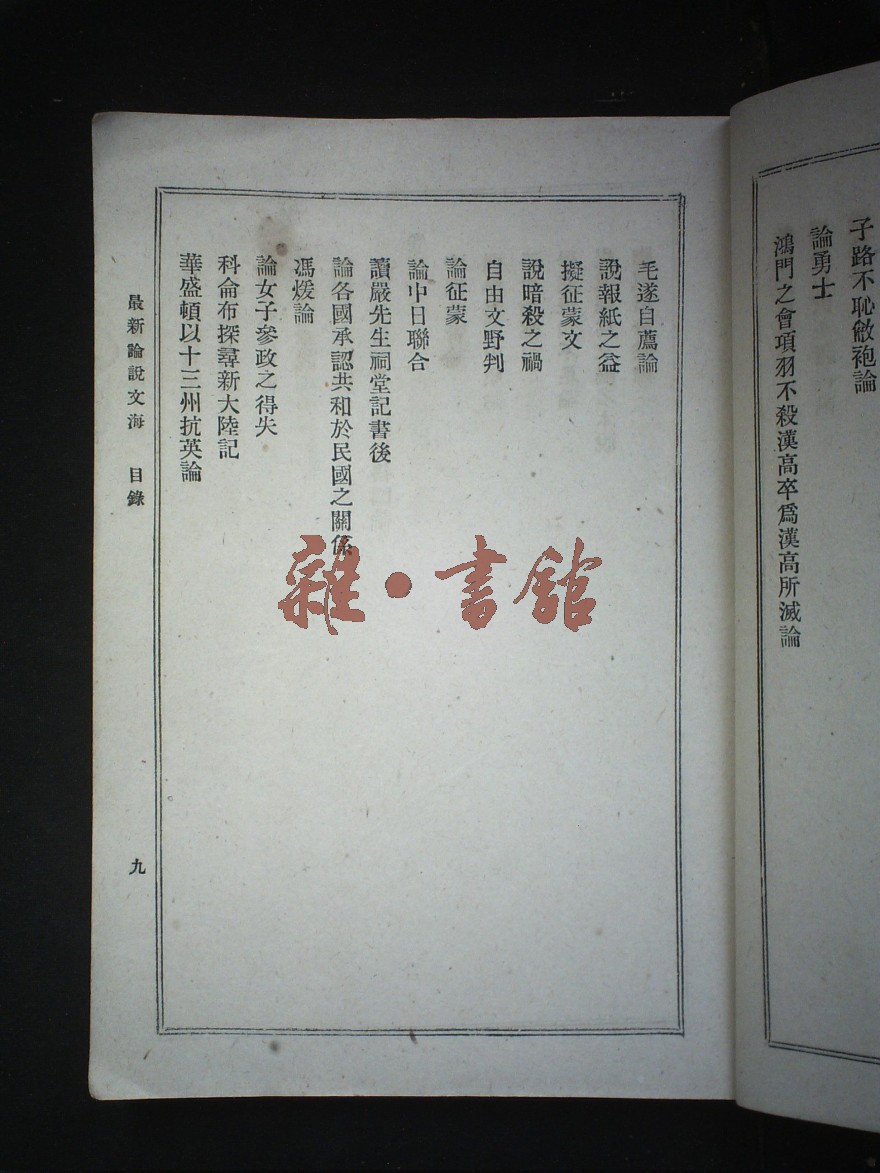 子路不恥敝袍論
論勇士
鴻門之會項羽不殺漢高卒爲漢高所滅論
毛遂自薦論
說報紙之益
擬征蒙文
說暗殺之禍
自由文野判
論征蒙
論中日聯合
讀嚴先生祠堂記書後
論各國承認共和於民國之關係
馮煖論
論女子參政之得失
科侖布探尋新大陸記
華盛頓以十三州抗英論
最新論說文海 目錄 九
雜·書館